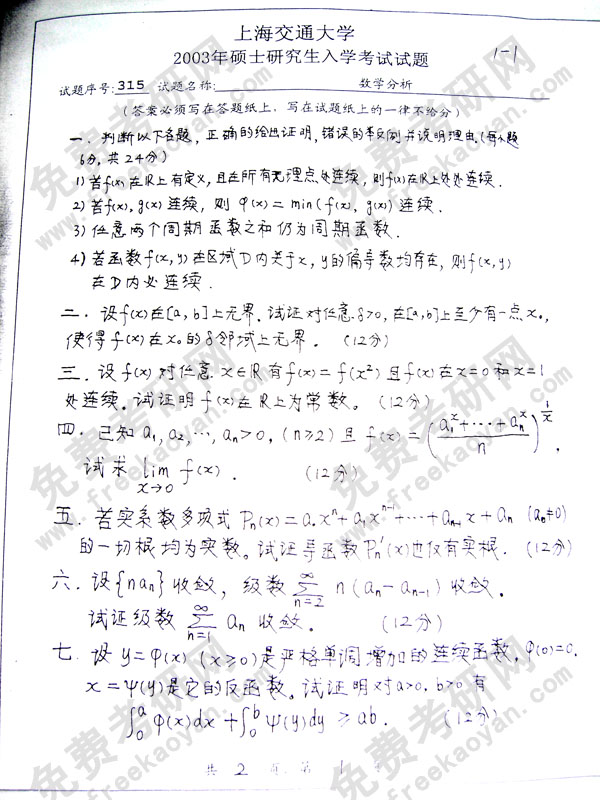 上海交通大学
2003年硕士研究生入学考试试题
1-1
试题序号:315 试题名称: 数学分析
(答案必须写在答题纸上,写在试题纸上的一律不给分)
一、判断以下各题,正确的给出证明,错误的举反例并说明理由.(每小题
6分,共24分)
1) 若f(x)在R上有定义,且在所有无理点处连续,则f(x)在R上处处连续.
2) 若f(x),g(x)连续,则 φ(x)=min(f(x),g(x))连续.
3) 任意两个周期函数之和仍为周期函数.
4) 若函数f(x,y)在区域D内关于x,y的偏导数均存在,则f(x,y)
在D内必连续.
二、设f(x)在[a,b]上无界.试证对任意δ>0,在[a,b]上至少有一点x₀,
使得f(x)在x₀的δ邻域上无界. (12分)
三、设f(x)对任意x∈R有f(x)=f(x²)且f(x)在x=0和x=1
处连续。试证明f(x)在R上为常数。(12分)
四、已知a₁,a₂,…,aₙ>0,(n≥2)且 f(x)=((a₁ˣ+…+aₙˣ)/n)^(1/x).
试求 lim_{x→0} f(x). (12分)
五.若实系数多项式 Pₙ(x)=a₀xⁿ+a₁xⁿ⁻¹+…+aₙ₋₁x+aₙ (aₙ≠0)
的一切根均为实数。试证导函数Pₙ'(x)也仅有实根.(12分)
六.设{naₙ}收敛,级数 ∑_{n=2}^{∞} n(aₙ-aₙ₋₁)收敛.
试证级数 ∑_{n=1}^{∞} aₙ 收敛. (12分)
七.设 y=φ(x) (x≥0)是严格单调增加的连续函数,φ(0)=0.
x=ψ(y)是它的反函数。试证明对a>0,b>0有
∫₀ᵃ φ(x)dx+∫₀ᵇ ψ(y)dy ≥ab. (12分)
共 2 页 第 1
免费考研网
www.freekaoyan.com